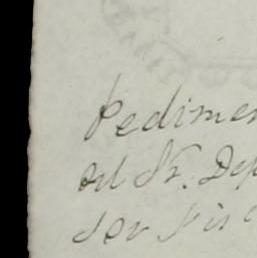 Pedimen
del Sr. Dep
sor Fis